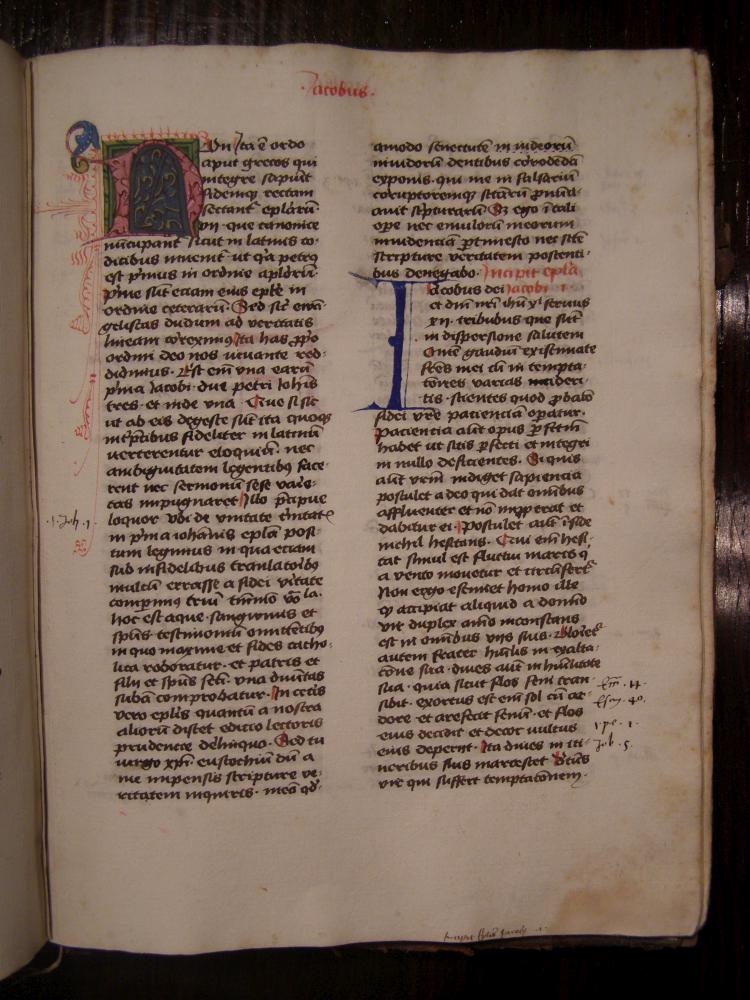 Jacobus.
Non Ita e ordo
aput grecos qui
integre sapiunt
fidemque rectam
sectant eplarum
vii. que canonice
nuncupant sicut in latinis co-
dicibus invenit ut qa petrus
est primus in ordine aplorum
prime sut etiam eius eple in
ordine ceterarum. Sed sic evan-
gelistas dudum ad veritatis
lineam correximus Ita has proprio
ordini deo nos iuvante red-
didimus. Est em una earum
prima Jacobi. due petri Johis
tres. et iude una. Que si sic
ut ab eis degeste sut ita quoque
interpretibus fideliter in latinum
verterentur eloquium. nec
ambiguitatem legentibus face-
rent nec sermonum sese varie-
tas impugnaret Illo precipue
loquor ubi de unitate trinitatis
in prima iohanis epla posi-
tum legimus in qua etiam
sub infidelibus translatoribus
multum errasse a fidei veritate
comperimus trium tantummodo vocabula.
hoc est aque. sanguinis et
spus testimonium omittentibus
in quo maxime et fides catho-
lica roboratur. et patris et
filii et spus scti. una divinitatis
substantia comprobatur. In ceteris
vero eplis quantum a nostra
aliorum distet edicio lectoris
prudencie delinquo. Sed tu
virgo xpi. eustochium dum a
me impensius scripture ve-
ritatem inquiris. meam quod-
.1. Joh. 1.
amodo senectutem in videorum
invidorum dentibus corrodendam
exponis. qui me in falsarium
corruptoremque sctarum pronunci-
ant scripturarum. Sz ego in tali
ope nec emulorum meorum
invidenciam pertimesco nec scte
scripture veritatem poscenti-
bus denegabo. Incipit epla
Jacobi 1
Jacobus dei
et dni nri ihu xi servus
xii. tribubus que sut
in dispersione salutem
Omne gaudium existimate
fres mei cum in tempta-
tiones varias incideri-
tis. scientes quod probatio
fidei vre pacienciam operatur.
Paciencia aut opus perfectum
habet ut sitis perfecti et integri
in nullo deficientes. Si quis
aut vrm indiget sapiencia
postulet a deo qui dat omnibus
affluenter et no improperat et
dabitur ei. Postulet aut in fide
nichil hesitans. Qui em hesi-
tat similis est fluctui maris q
a vento movetur et circumfertur
Non ergo estimet homo ille
q accipiat aliquid a domino
vir duplex animo inconstans
est in omnibus viis suis. Glorietur
autem frater humilis in exalta-
tione sua. dives aut in humilitate
sua. quia sicut flos feni tran-
sibit. exortus est em sol cu ar-
dore et arefecit fenum. et flos
eius decidit et decor vultus
eius deperiit. Ita dives in iti-
neribus suis marcescet Beatus
vir qui suffert temptationem.
Esay. 40.
1 pe. 1.
Job. 5.